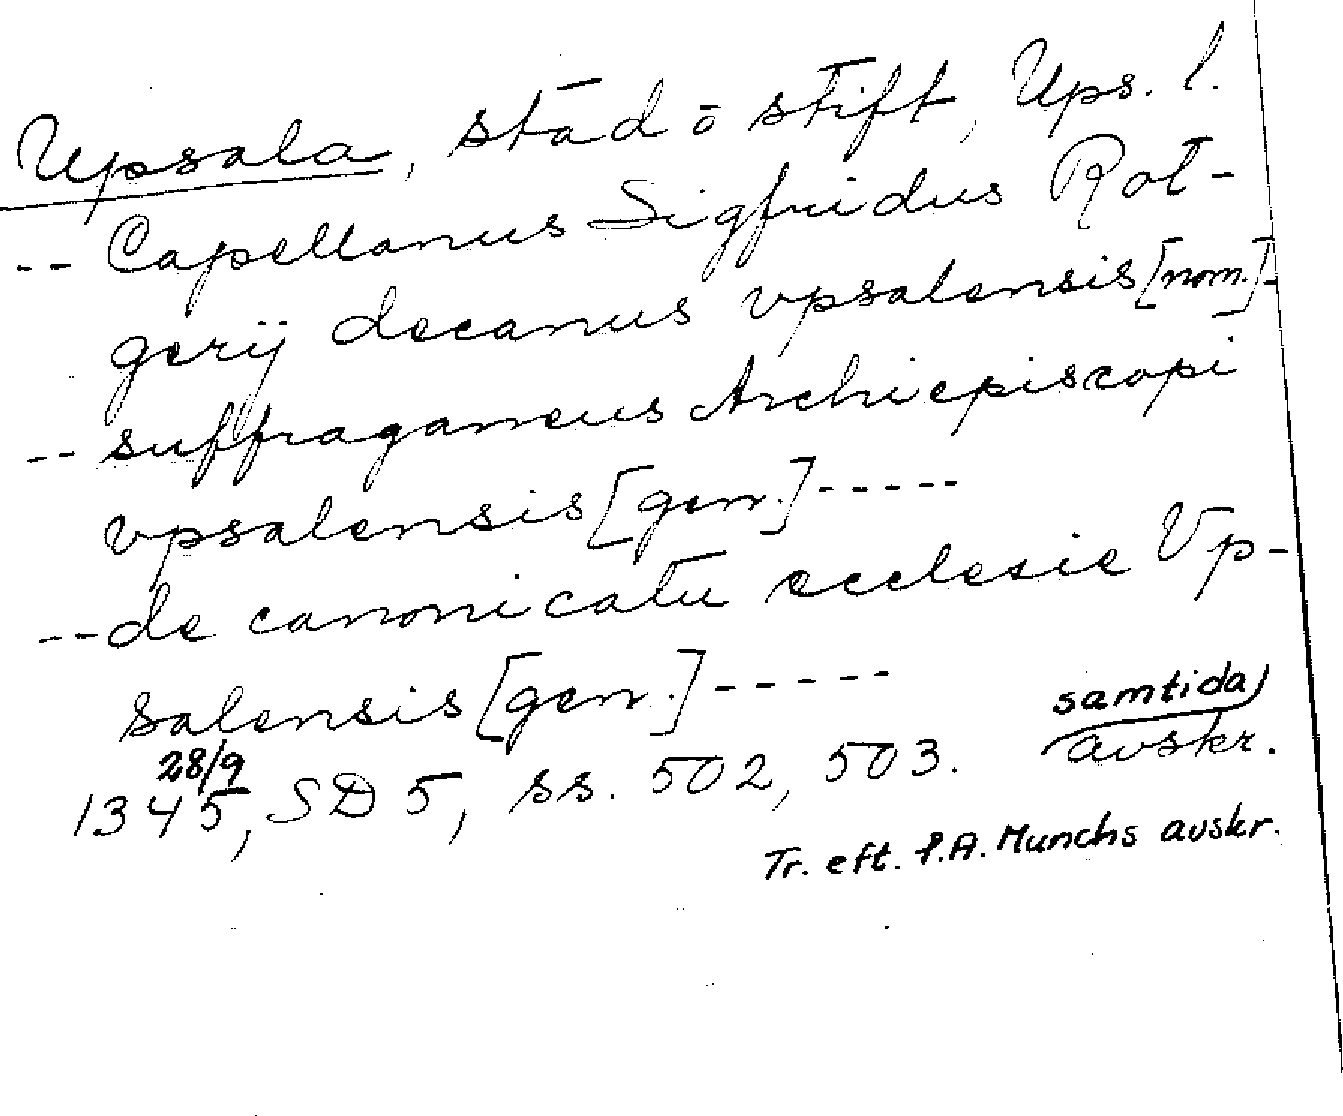 Upsala, stad o stift, Ups. l.
-- Capellanus Sigfridus Rot-
gerij decanus vpsalensis [nom.]-
-- suffraganeus Archiepiscopi
vpsalensis [gen.] -----
-- de canonicatu ecclesie Vp-
salensis [gen.] -----
samtida
28/9
1345, SD 5, ss. 502, 503. avskr.
Tr. eft. P.A. Munchs avskr.